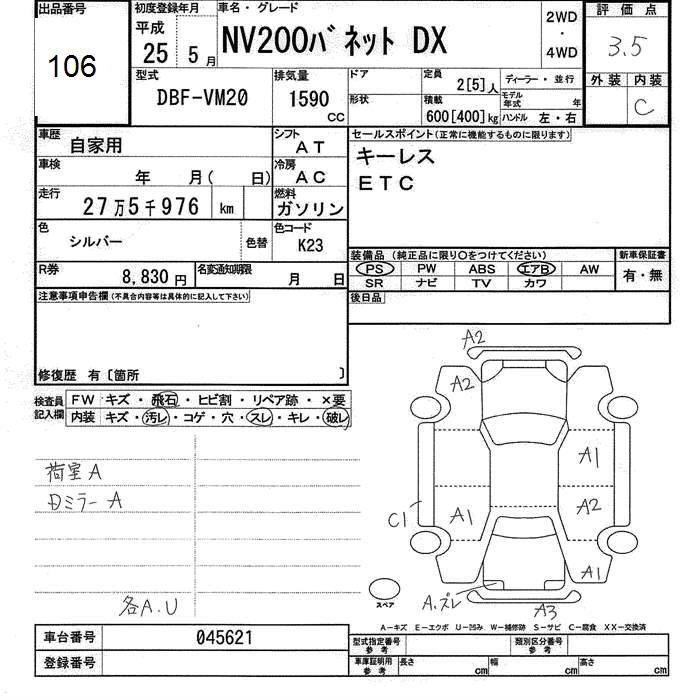 出品番号
106
初度登録年月
平成
25 5 月
車名・グレード
NV200バネット DX
2WD
・
4WD
評価点
3.5
外装 内装
C
型式
DBF-VM20
排気量
1590
CC
ドア
形状
定員
2[5]人
積載
600[400]kg
ディーラー・並行
モデル
年式 年
ハンドル 左・右
車歴
自家用
シフト
AT
車検
年 月( 日)
冷房
AC
走行
27万5千976 km
燃料
ガソリン
色
シルバー
色替
色コード
K23
R券
8,830 円
名変通知期限
月 日
セールスポイント(正常に機能するものに限ります)
キーレス
ETC
装備品 (純正品に限り〇をつけてください)
PS PW ABS エアB AW
SR ナビ TV カワ
新車保証書
有・無
後日品
注意事項申告欄(不具合内容等は具体的に記入して下さい)
修復歴 有〔箇所 〕
検査員
記入欄
FW キズ・飛石・ヒビ割・リペア跡・×要
内装 キズ・汚レ・コゲ・穴・スレ・キレ・破レ
荷室 A
Dミラー A
各A.U
A2
A2
A1
A1
A2
C1
A1
A.ズレ
A3
スペア
A-キズ E-エクボ U-凹み W-補修跡 S-サビ C-腐食 XX-交換済
車台番号
045621
登録番号
型式指定番号
参考
類別区分番号
参考
車庫証明用
参考
長さ cm
幅 cm
高さ cm